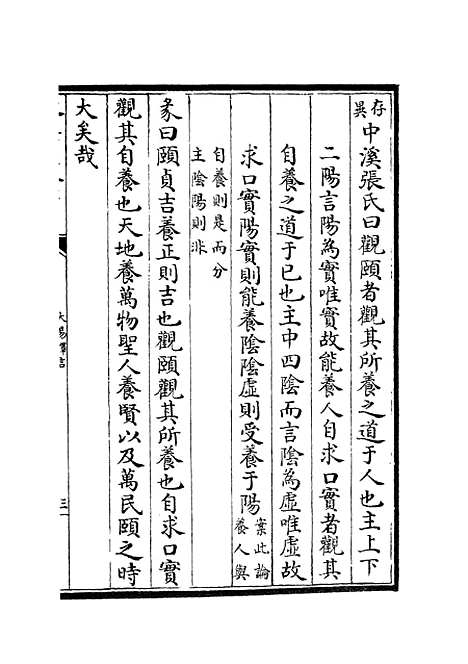 存異中溪張氏曰觀頤者觀其所養之道于人也主上下
二陽言陽為實唯實故能養人自求口實者觀其
自養之道于已也主中四陰而言陰為虛唯虛故
求口實陽實則能養陰陰虛則受養于陽案此論養人與
自養則是而分主陰陽則非
彖曰頤貞吉養正則吉也觀頤觀其所養也自求口實
觀其自養也天地養萬物聖人養賢以及萬民頤之時
大矣哉
大易擇言
三